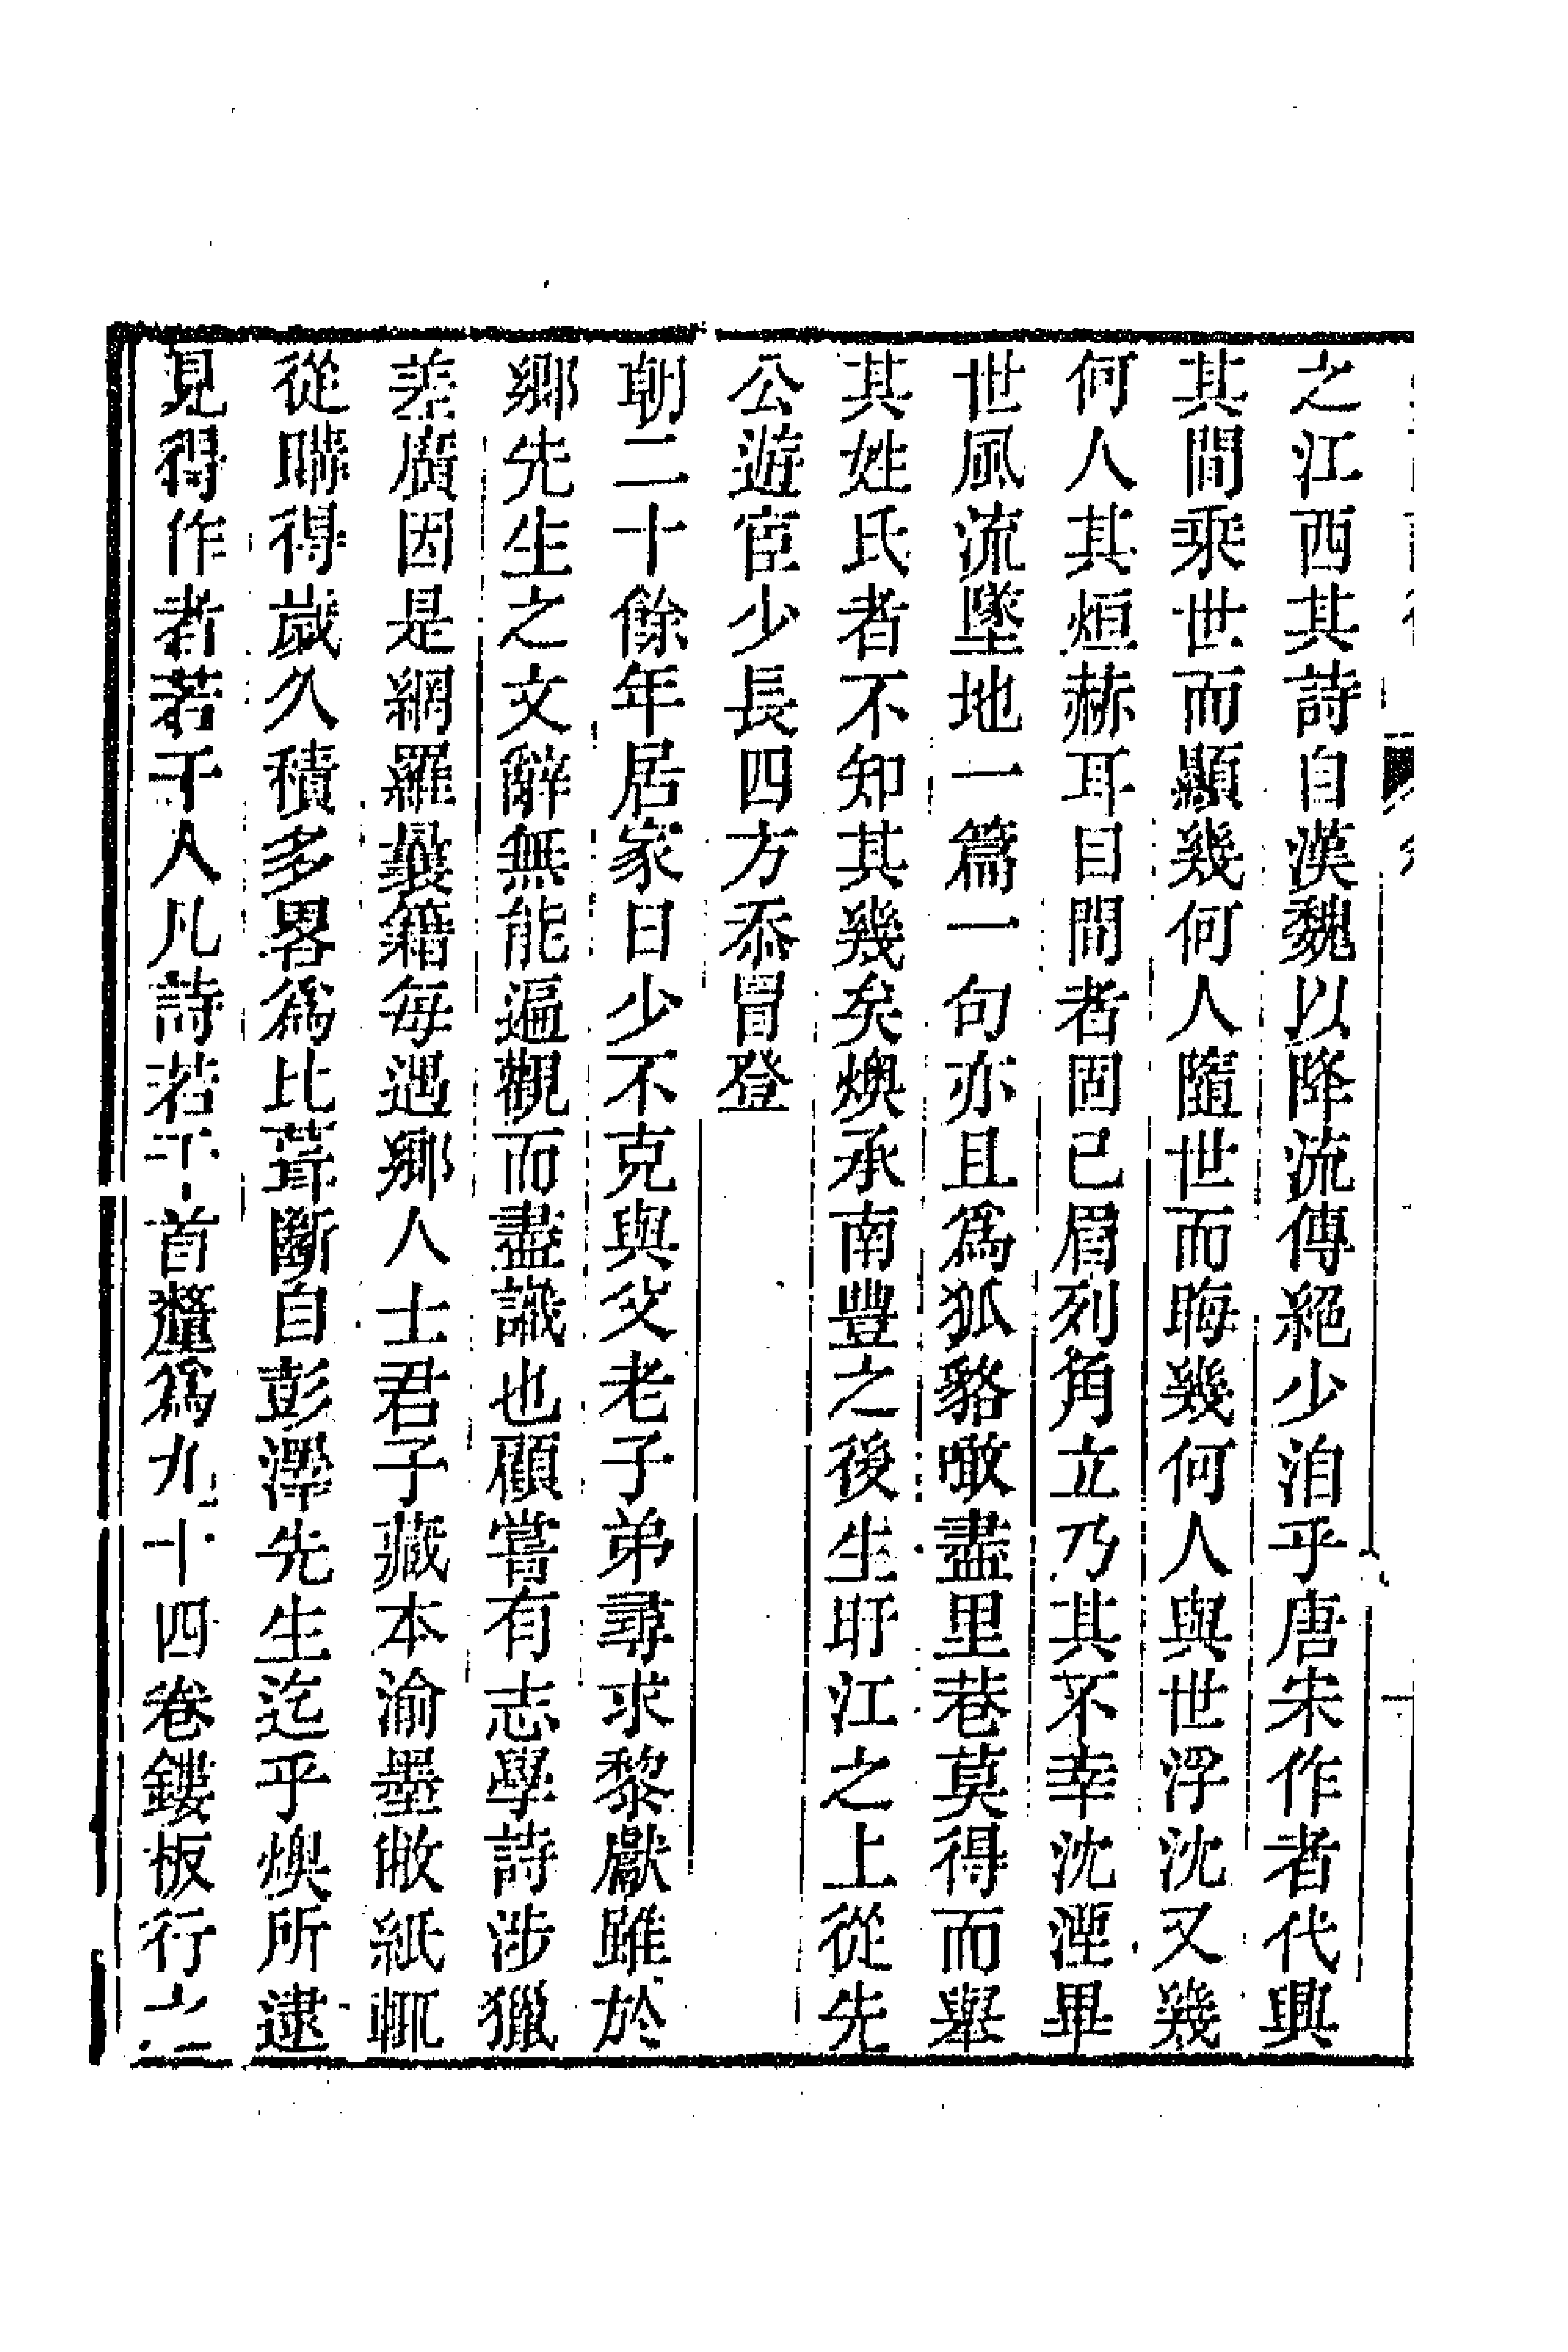 之江西其詩自漢魏以降流傳絕少洎乎唐宋作者代興
其間乘世而顯幾何人隨世而晦幾何人與世浮沈又幾
何人其烜赫耳目間者固已眉列角立乃其不幸沈湮畢
世風流墜地一篇一句亦且為狐貉噉盡里巷莫得而舉
其姓氏者不知其幾矣燠承南豐之後生盱江之上從先
公遊宦少長四方忝冒登
朝二十餘年居家日少不克與父老子弟尋求黎獻雖於
鄉先生之文辭無能遍觀而盡識也顧嘗有志學詩涉獵
差廣因是網羅載籍每遇鄉人士君子藏本渝墨敝紙輒
從購得歲久積多畧為比葺斷自彭澤先生迄乎燠所逮
見得作者若干人凡詩若干首釐為九十四卷鏤板行之